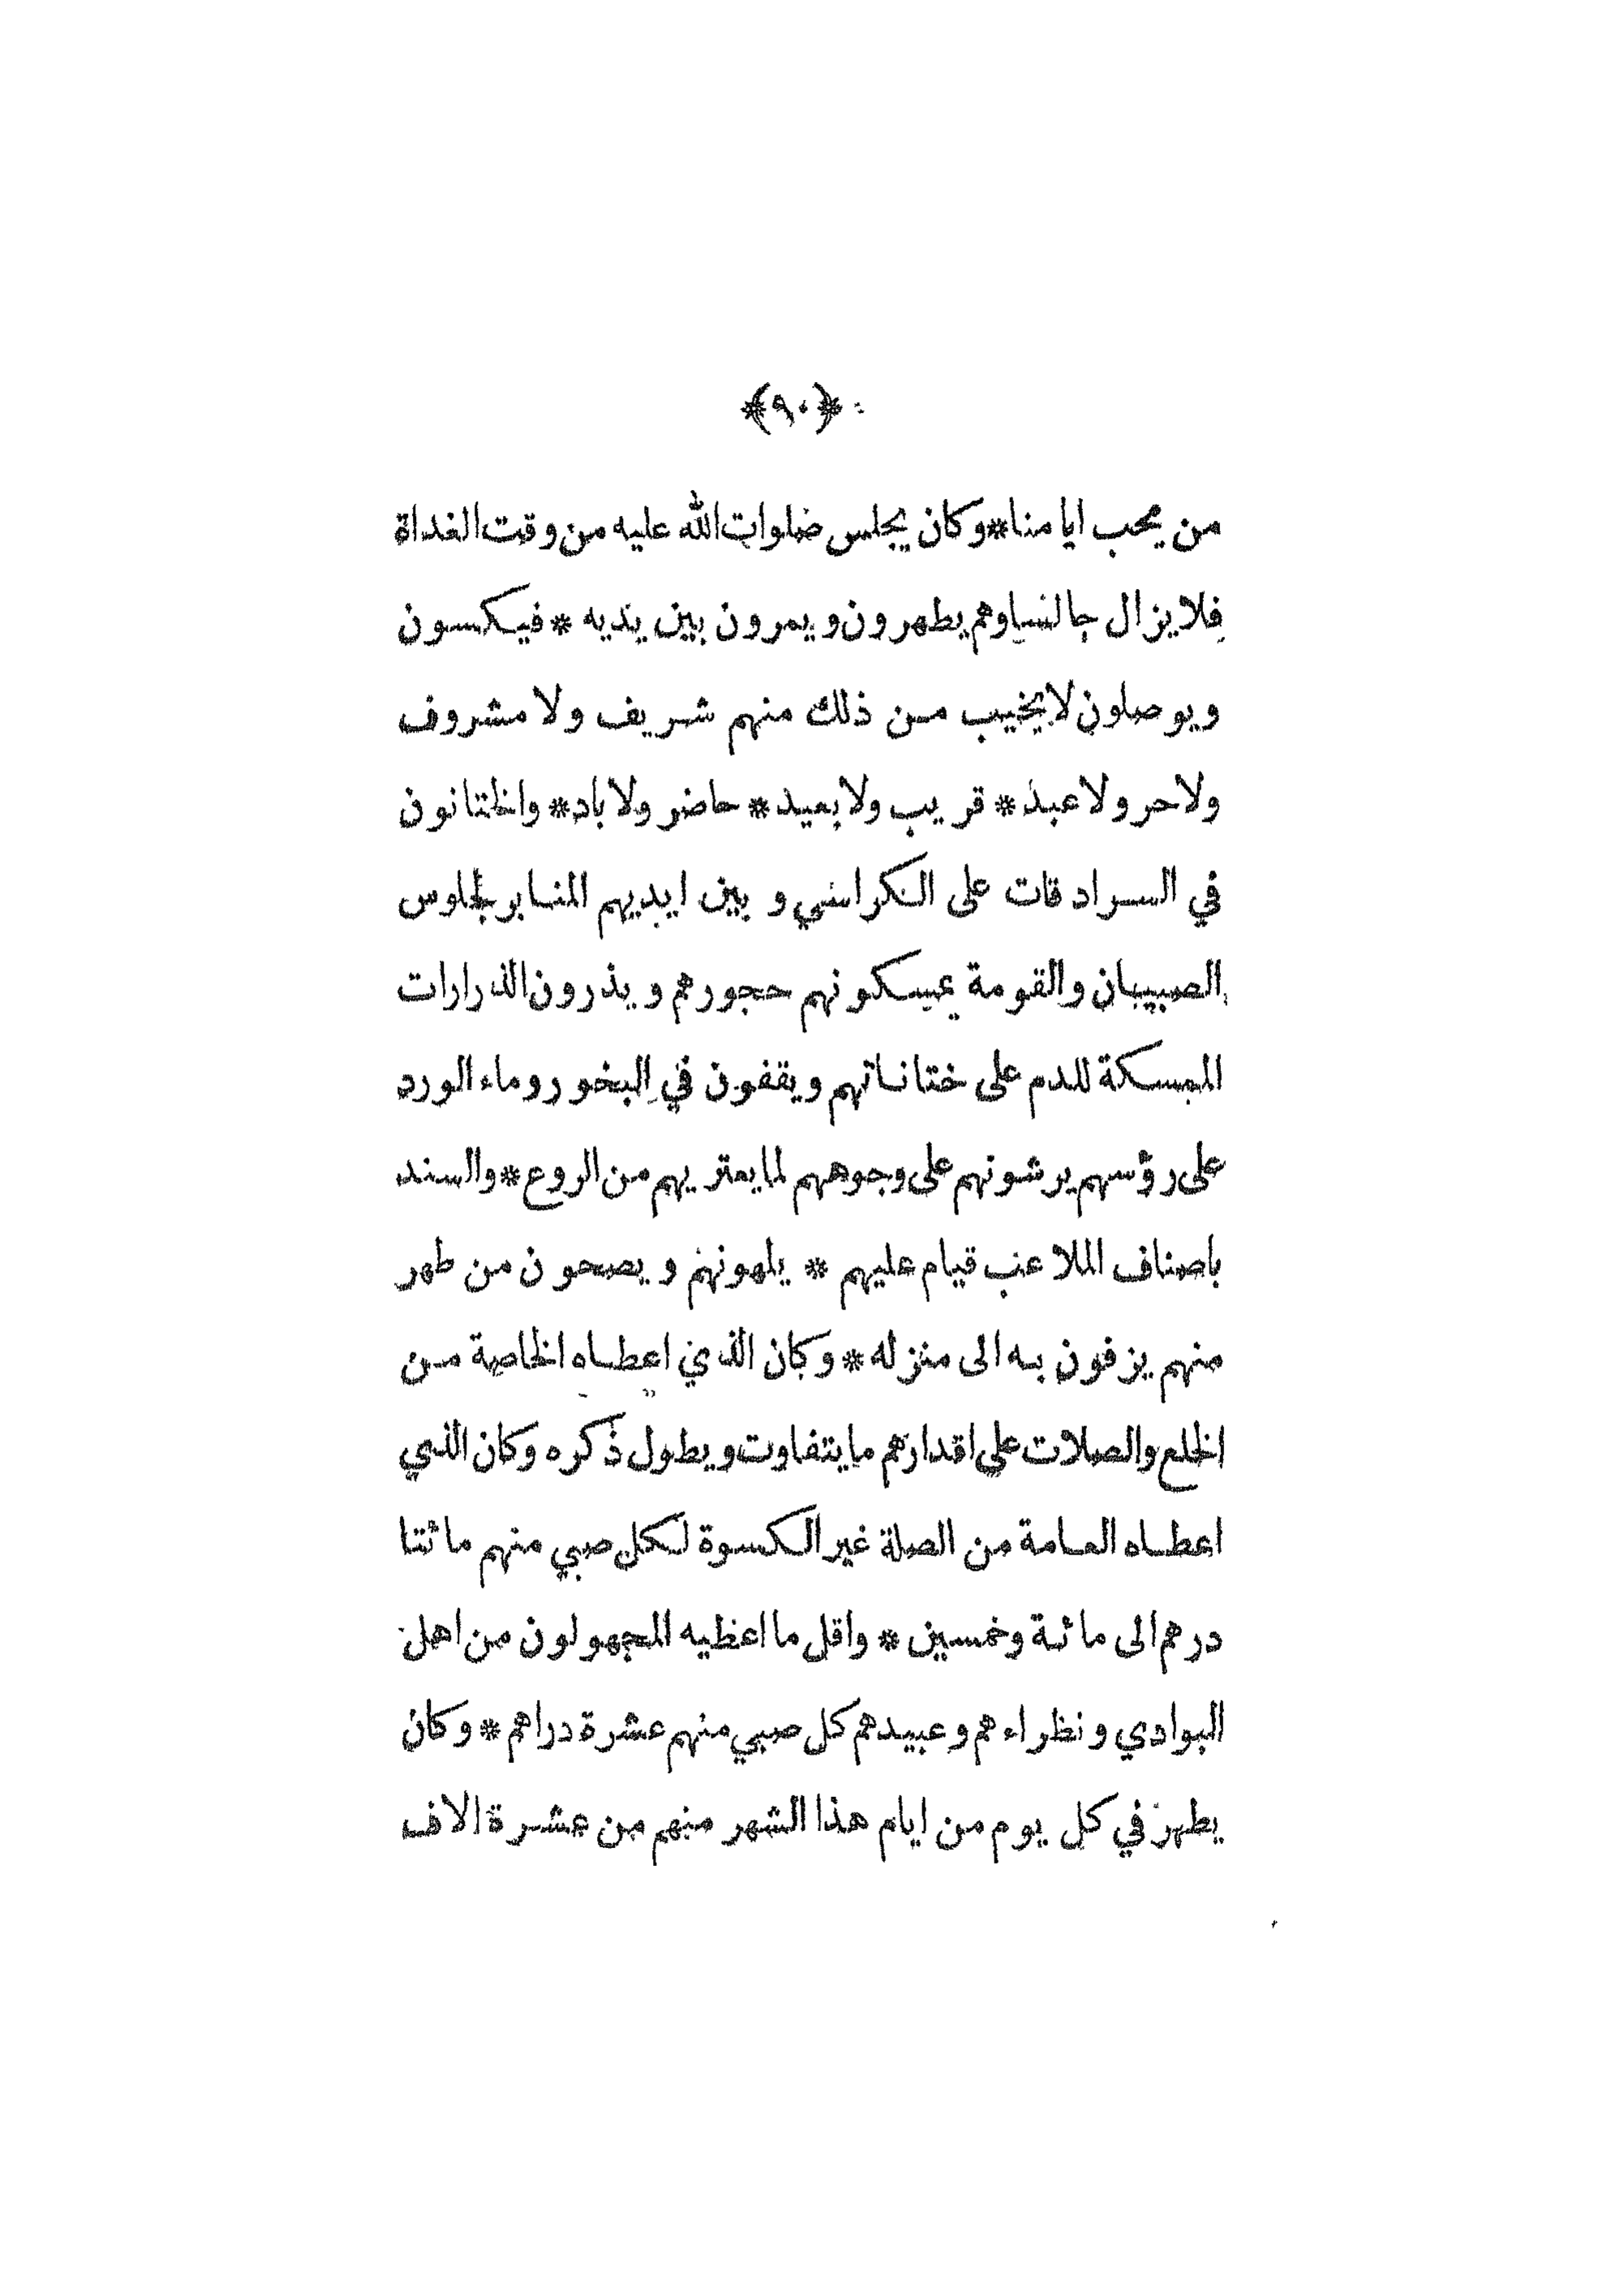 ﴿٩٠﴾
من يحب ايا منا * وكان يجلس صلوات الله عليه من وقت الغداة
فلا يزال جالسا وهم يطهرون ويمرون بين يديه * فيكسون
ويوصلون لا يخيب من ذلك منهم شريف ولا مشروف
ولا حر ولا عبد * قريب ولا بعيد * حاضر ولا باد * والختانون
في السرادقات على الكراسي وبين ايديهم المنابر لجلوس
الصبيان والقومة يمسكونهم حجورهم ويذرون الذرارات
الممسكة للدم على ختاناتهم ويقفون في البخور وماء الورد
على رؤسهم يرشونهم على وجوههم لما يعتريهم من الروع * والسند
باصناف الملاعب قيام عليهم * يلهونهم ويصحون من طهر
منهم يزفون به الى منزله * وكان الذي اعطاه الخاصة من
الخلع والصلات على اقدارهم ما يتفاوت ويطول ذكره وكان الذي
اعطاه العامة من الصلة غير الكسوة لكل صبي منهم مائتا
درهم الى مائة وخمسين * واقل ما اعطيه المجهولون من اهل
البوادي ونظراءهم وعبيدهم كل صبي منهم عشرة دراهم * وكان
يطهر في كل يوم من ايام هذا الشهر منهم من عشرة الاف